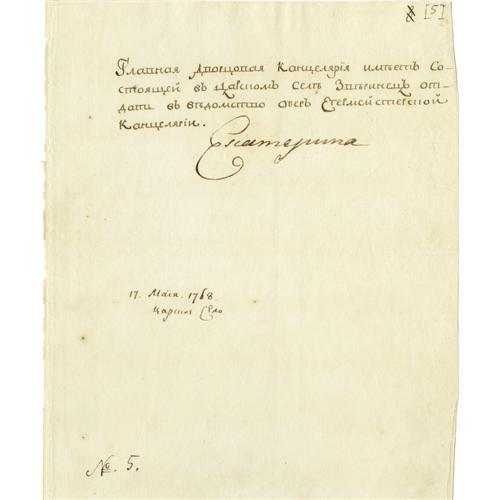 [5]
Главная Дворцовая Канцелярія имѣетъ Со-
стоящей въ Царскомъ Селѣ Звѣринецъ от-
дать въ вѣдомство Оберъ Егермейстерской
Канцеляріи.
Екатерина
17. Маія. 1768.
Село
№. 5.